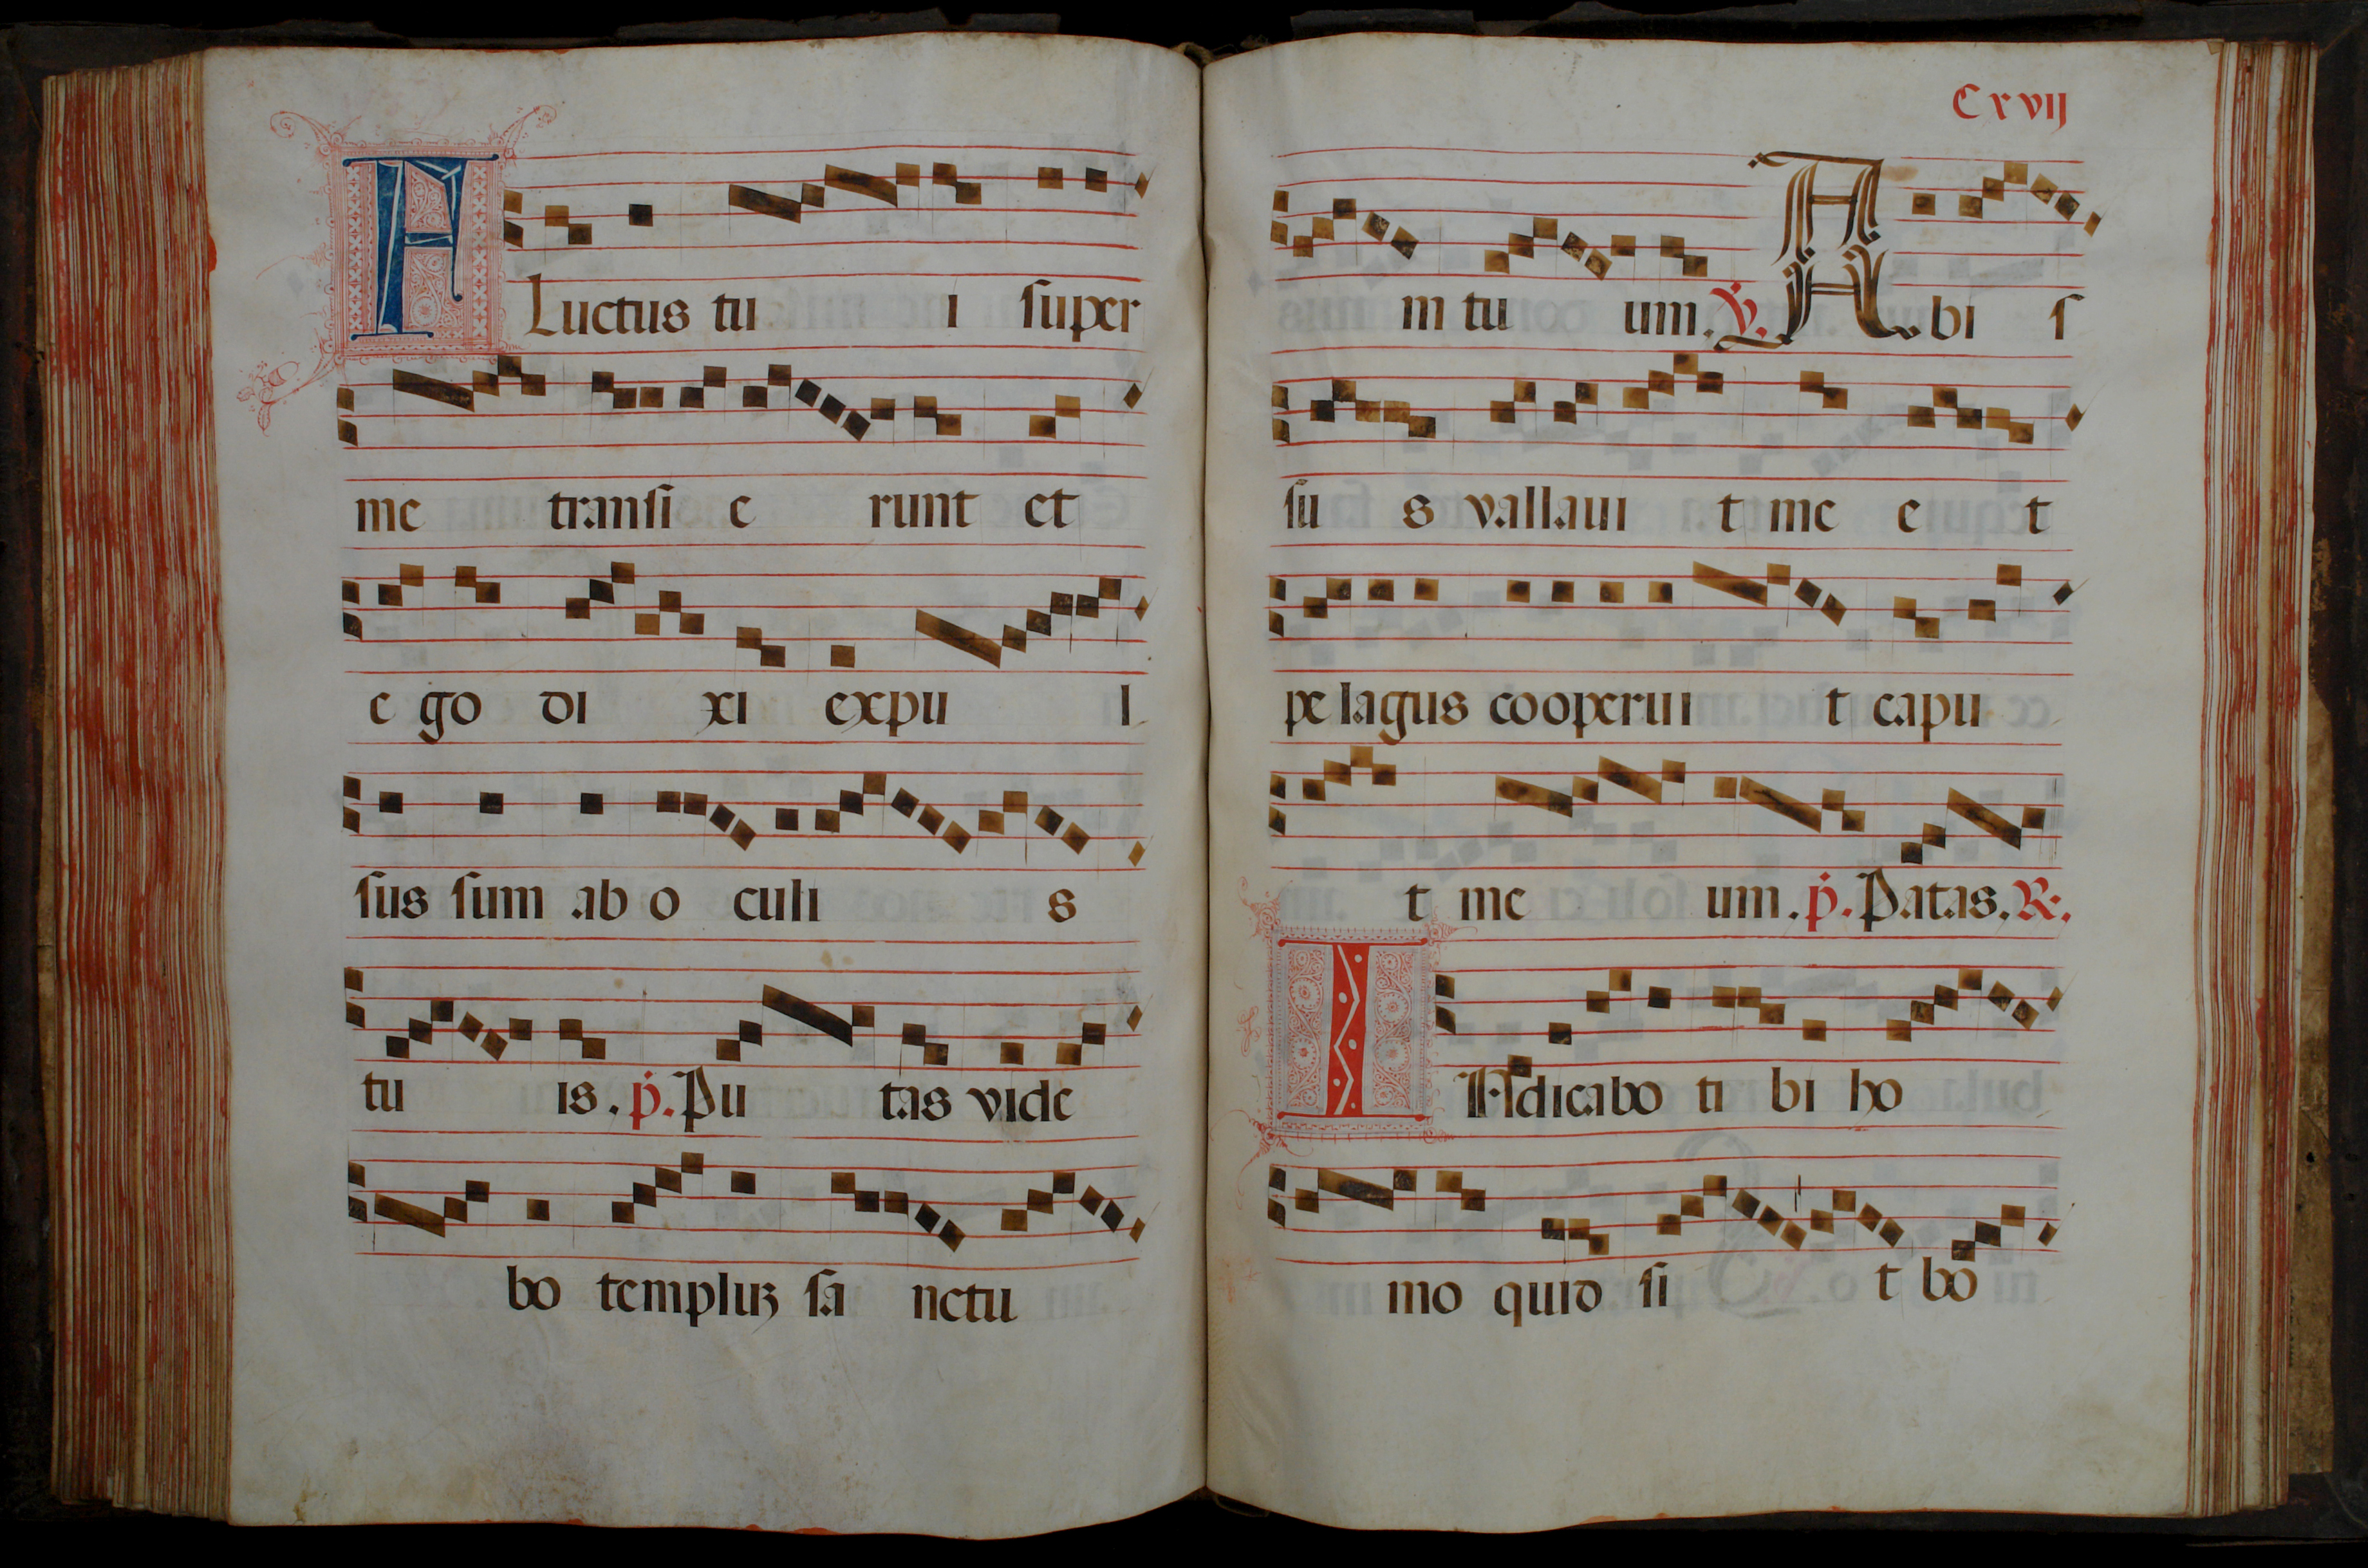 FLuctus tu i super
me transi e runt et
e go di xi expu l
sus sum ab o culi s
tu is. p. Pu tas vide
bo templuz sa nctu
Cxvij
m tu um. V. Abi s
su s vallaui t me e t
pe lagus cooperui t capu
t me um. p. Patas. R.
INdicabo ti bi ho
mo quid si t bo